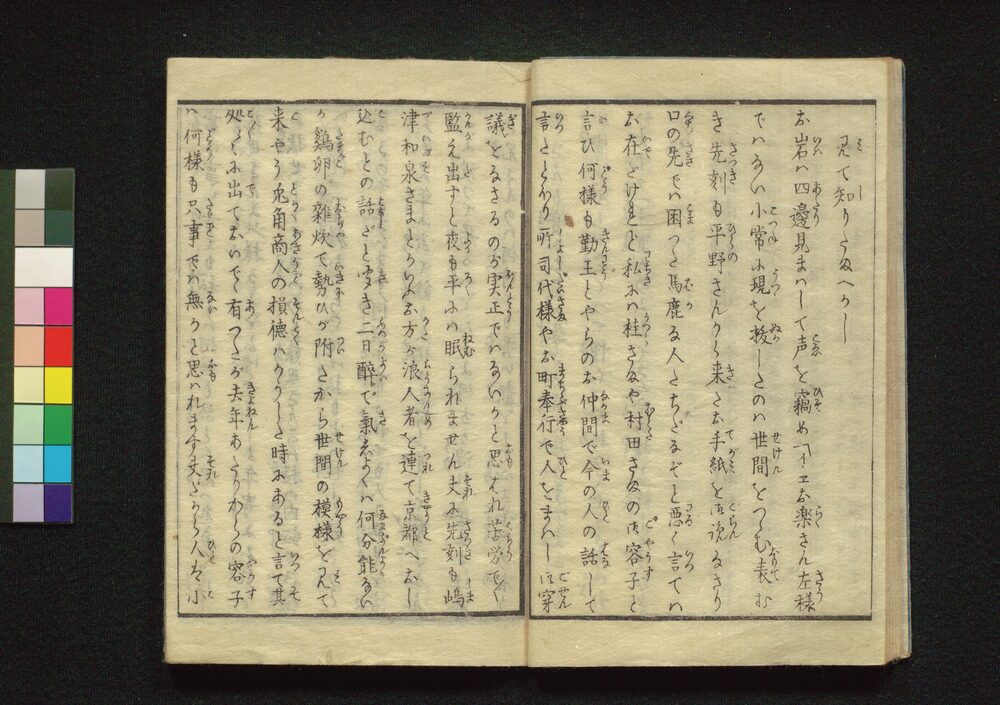 見て知りたまへかし
お岩ハ四邊見まハして声を竊め「イヱお楽さん左様
でハない小常に現を拔したのハ世間をつゝむ表む
き先刻も平野さんから来たお手紙を御読なさり
口の先でハ困つた馬鹿な人たちだぞと悪く言てハ
お在だけれど私にハ桂さまや村田さまの御容子と
言ひ何様も勤王とやらのお仲間で今の人の話しして
言たとほり所司代様やお町奉行で人をまハし御穿
議をなさるのが実正でハないかと思はれ苦労でく
監え出すと夜も平にハ眠られません丈に先刻も嶋
津和泉さまとかいふお方が浪人者を連て京都へおし
込むとの話だと聞き二日醉で氣を何分能ない
が鶏卵の雑炊で勢ひが附たから世間の模様を見て
来やう兎角商人の損德ハかうした時にあると言て其
処らに出ておいで有つたが去年あたりからの容子
ハ何様も只事でハ無かと思ハれます丈だから人を小